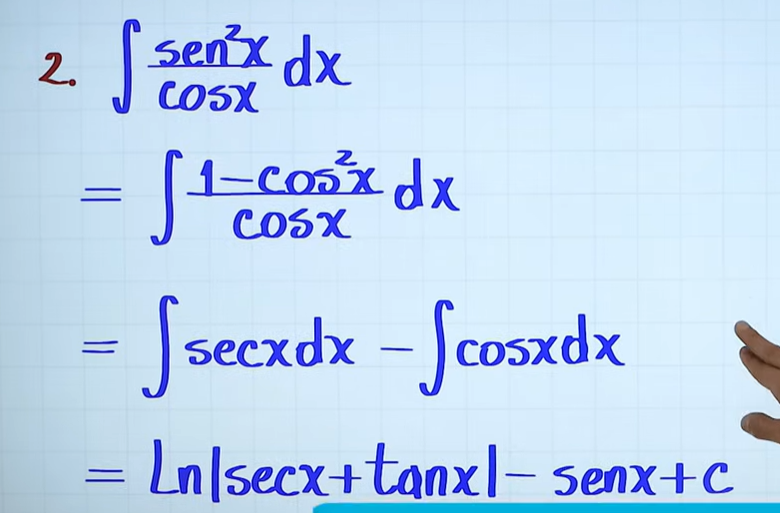 2. ∫ sen²x/cosx dx
= ∫ 1-cos²x/cosx dx
= ∫secxdx - ∫cosxdx
= Ln|secx+tanx|- senx+c